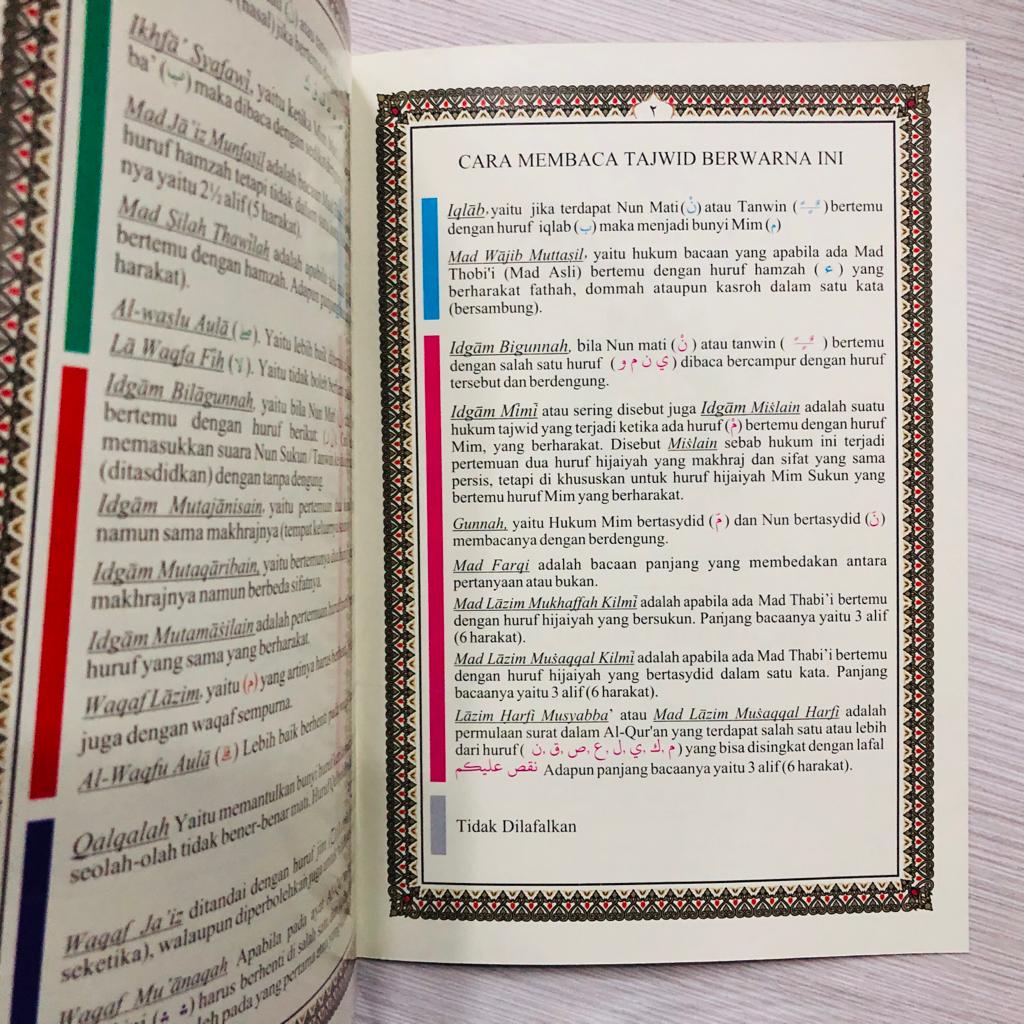 (nasal) jika
Ikhfā' Syafawī, yaitu ketika
ba' (ب) maka dibaca dengan
Mad Jā'iz Munfasil adalah bacaan Mad
huruf hamzah tetapi tidak dalam
nya yaitu 2½ alif (5 harakat).
Mad Silah Thawīlah adalah apabila ada
bertemu dengan hamzah. Adapun
harakat).
Al-waslu Aulā (صلے). Yaitu lebih baik
Lā Waqfa Fīh (لا). Yaitu tidak boleh
Idgām Bilāgunnah, yaitu bila Nun Mati
bertemu dengan huruf berikut:
memasukkan suara Nun Sukun / Tanwin
(ditasdidkan) dengan tanpa dengung
Idgām Mutajānisain, yaitu pertemuan dua
namun sama makhrajnya (tempat
Idgām Mutaqāribain, yaitu bertemunya
makhrajnya namun berbeda sifatnya.
Idgām Mutamāṡilain adalah pertemuan
huruf yang sama yang berharakat.
Waqaf Lāzim, yaitu (م) yang artinya harus
juga dengan waqaf sempurna.
Al-Waqfu Aulā (قلے) Lebih baik berhenti pada
Qalqalah Yaitu memantulkan bunyi huruf
seolah-olah tidak bener-benar mati. Huruf
Waqaf Ja'iz ditandai dengan huruf jim
seketika), walaupun diperbolehkan juga untuk
Waqaf Mu'ānaqah Apabila pada ayat
harus berhenti di salah satu
pada yang pertama atau yang
٢
CARA MEMBACA TAJWID BERWARNA INI
Iqlāb, yaitu jika terdapat Nun Mati (نْ) atau Tanwin (ـًـٍـٌ) bertemu
dengan huruf iqlab (ب) maka menjadi bunyi Mim (م)
Mad Wājib Muttasil, yaitu hukum bacaan yang apabila ada Mad
Thobi'i (Mad Asli) bertemu dengan huruf hamzah (ء) yang
berharakat fathah, dommah ataupun kasroh dalam satu kata
(bersambung).
Idgām Bigunnah, bila Nun mati (نْ) atau tanwin (ـًـٍـٌ) bertemu
dengan salah satu huruf (ي ن م و) dibaca bercampur dengan huruf
tersebut dan berdengung.
Idgām Mimī atau sering disebut juga Idgām Miṡlain adalah suatu
hukum tajwid yang terjadi ketika ada huruf (مْ) bertemu dengan huruf
Mim, yang berharakat. Disebut Miṡlain sebab hukum ini terjadi
pertemuan dua huruf hijaiyah yang makhraj dan sifat yang sama
persis, tetapi di khususkan untuk huruf hijaiyah Mim Sukun yang
bertemu huruf Mim yang berharakat.
Gunnah, yaitu Hukum Mim bertasydid (مّ) dan Nun bertasydid (نّ)
membacanya dengan berdengung.
Mad Farqi adalah bacaan panjang yang membedakan antara
pertanyaan atau bukan.
Mad Lāzim Mukhaffah Kilmī adalah apabila ada Mad Thabi'i bertemu
dengan huruf hijaiyah yang bersukun. Panjang bacaanya yaitu 3 alif
(6 harakat).
Mad Lāzim Muṡaqqal Kilmī adalah apabila ada Mad Thabi'i bertemu
dengan huruf hijaiyah yang bertasydid dalam satu kata. Panjang
bacaanya yaitu 3 alif (6 harakat).
Lāzim Harfi Musyabba' atau Mad Lāzim Muṡaqqal Harfi adalah
permulaan surat dalam Al-Qur'an yang terdapat salah satu atau lebih
dari huruf (م, ك, ي, ل, ع, ص, ق, ن) yang bisa disingkat dengan lafal
نقص عليكم Adapun panjang bacaanya yaitu 3 alif (6 harakat).
Tidak Dilafalkan